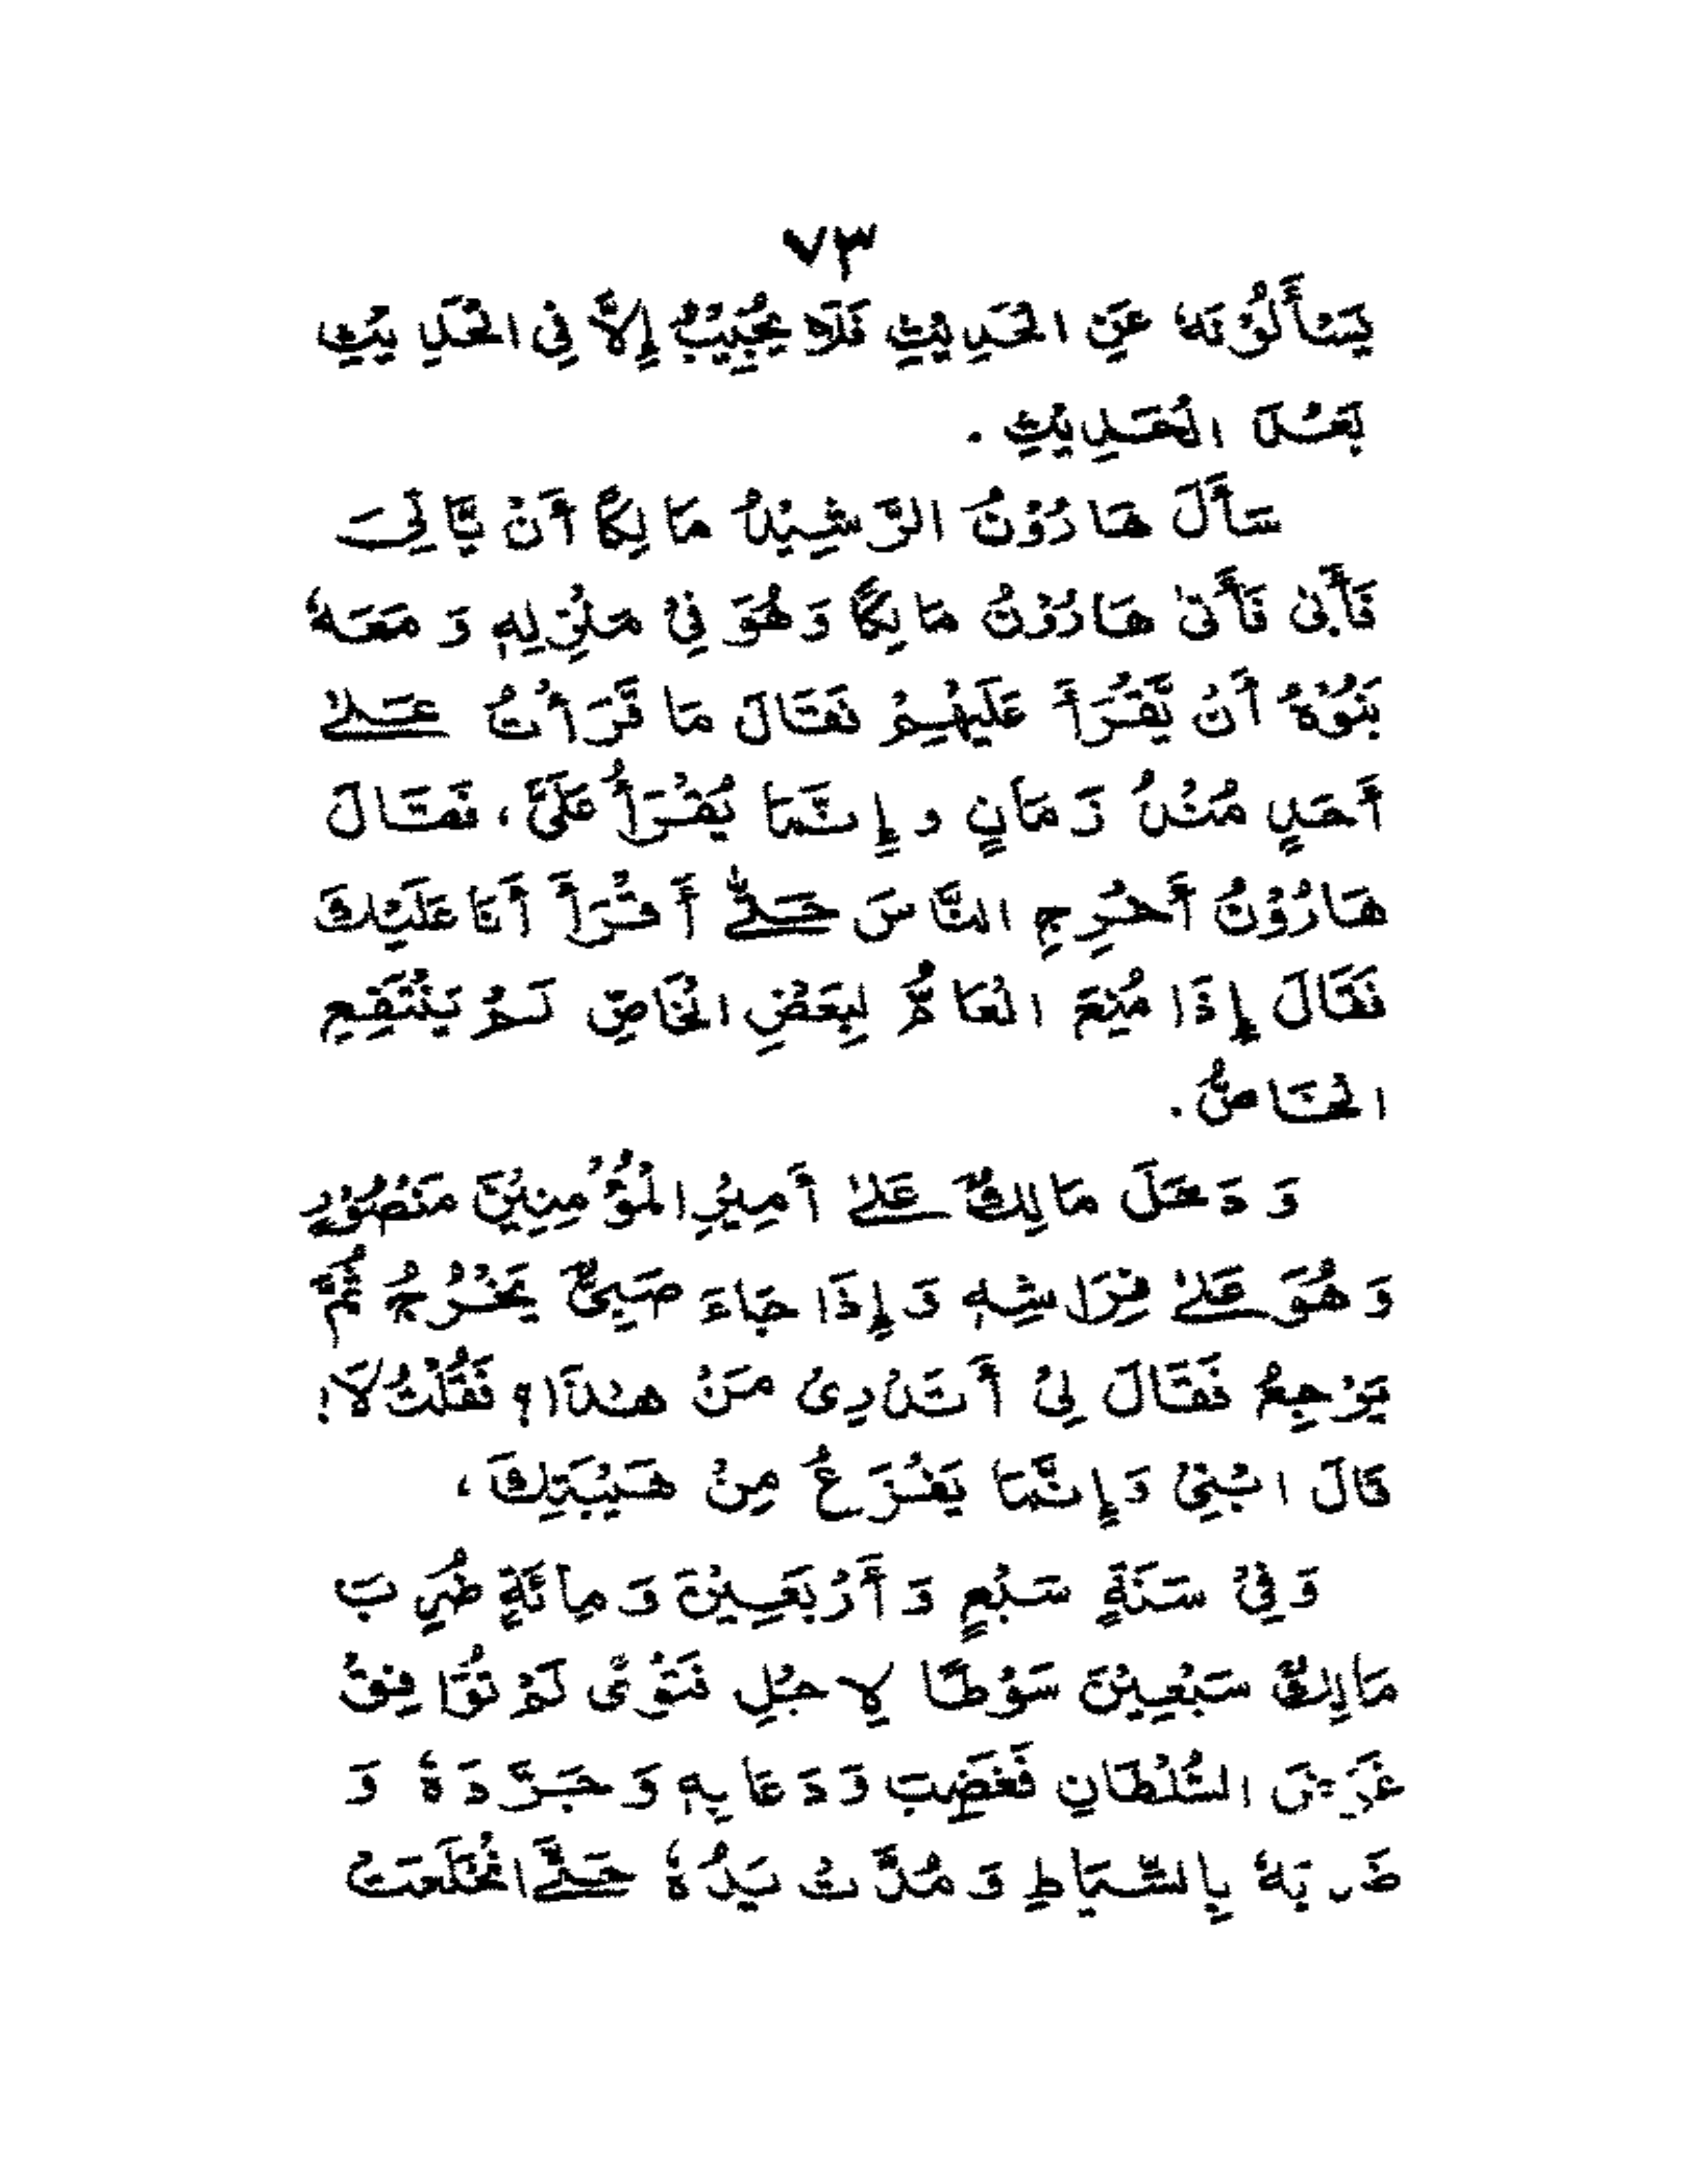 ٧٣
يَسْأَلُوْنَهٗ عَنِ الْحَدِيْثِ فَلَا يُجِيْبُ إِلَّا فِي الْحَدِيْثِ
بَعْدَ الْحَدِيْثِ .
سَأَلَ هَارُوْنُ الرَّشِيْدُ مَالِكًا أَنْ يَّأْتِيَ
فَأَبٰى فَأَتٰى هَارُوْنُ مَالِكًا وَهُوَ فِيْ مَنْزِلِهٖ وَ مَعَهٗ
بَنُوْهُ أَنْ يَّقْرَأَ عَلَيْهِمْ فَقَالَ مَا قَرَأْتُ عَلٰے
أَحَدٍ مُنْذُ زَمَانٍ وإِنَّمَا يُقْرَأُ عَلَيَّ، فَقَالَ
هَارُوْنُ أَخْرِجِ النَّاسَ حَتّٰے أَقْرَأَ أَنَا عَلَيْكَ
فَقَالَ إِذَا مُنِعَ الْعَامُّ لِبَعْضِ الْخَاصِّ لَمْ يَنْتَفِعِ
الْخَاصُّ.
وَ دَخَلَ مَالِكٌ عَلٰے أَمِيْرِ الْمُؤْمِنِيْنَ مَنْصُوْرٍ
وَ هُوَ عَلٰے فِرَاشِهٖ وَ إِذَا جَاءَ صَبِيٌّ يَخْرُجُ ثُمَّ
يَرْجِعُ فَقَالَ لِيْ أَتَدْرِىْ مَنْ هٰذَا؟ فَقُلْتُ لَا!
قَالَ ابْنِيْ وَإِنَّمَا يَفْزَعُ مِنْ هَيْبَتِكَ،
وَ فِيْ سَنَةِ سَبْعٍ وَ أَرْبَعِيْنَ وَ مِائَةٍ ضُرِبَ
مَالِكٌ سَبْعِيْنَ سَوْطًا لِاجْلِ فَتْوًى لَمْ تُوَافِقْ
غَرَضَ السُّلْطَانِ فَغَضِبَ وَ دَعَا بِهٖ وَ جَرَّدَهٗ وَ
ضَرَبَهٗ بِالسِّيَاطِ وَ مُدَّتْ يَدُهٗ حَتّٰے انْخَلَعَتْ